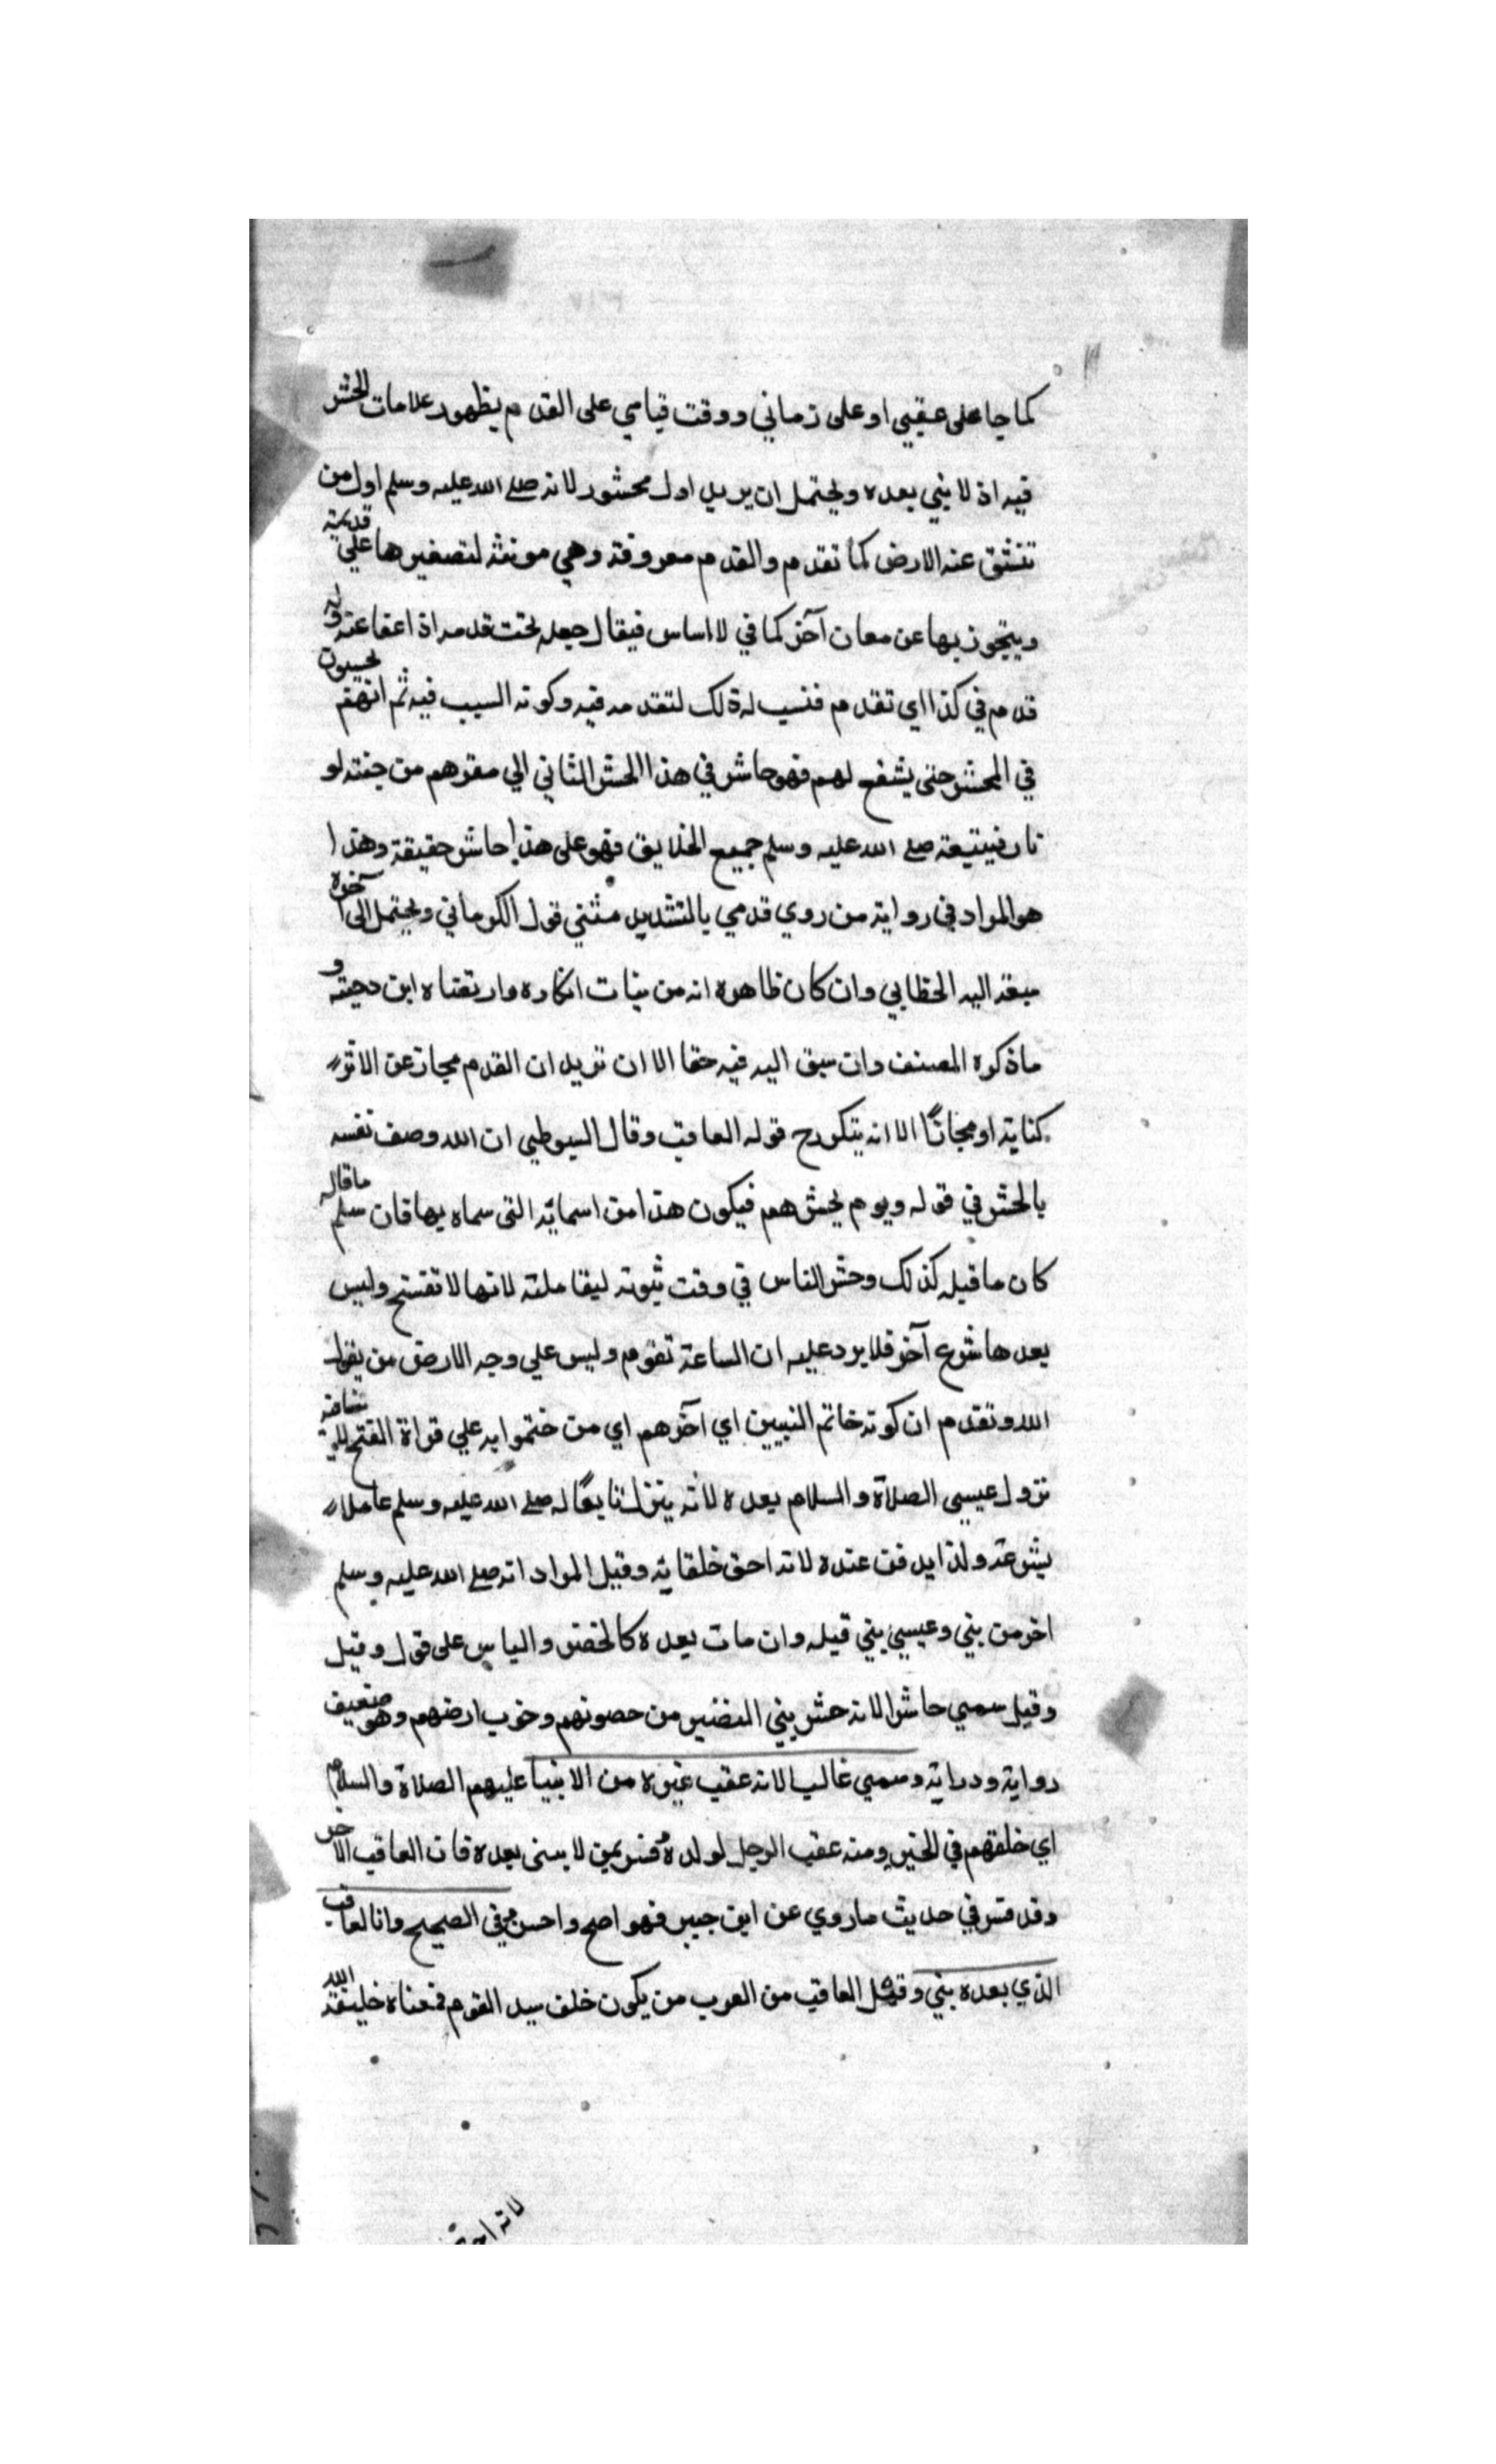 كما جا على عقبي او على زماني ووقت قيامي على القدم بظهور علامات الحشر
فيه اذ لا نبي بعده ويحتمل ان يريد اول محشور لانه صلى الله عليه وسلم اول من
تنشق عنه الارض كما تقدم والقدم معروفة وهي مونثة لتصغيرها علي قديمة
ويتجوز بها عن معان آخر كما في لااساس فيقال جعله تحت قدمه اذا عفا عنه وله
قدم في كذا اي تقدم فنسب له ذلك لتقدمه فيه وكونه السبب فيه ثم انهم يحبسون
في المحشر حتى يشفع لهم فهو حاشر في هذا الحشر الثاني الي مقرهم من جنته او
نار فيتبعه صلى الله عليه وسلم جميع الخلايق فهو على هذا حاشر حقيقة وهذا
هو المراد في رواية من روي قدمي بالتشديد مثنى قول الكرماني ويحتمل الى آخره
سبقه اليه الخطابي وان كان ظاهره انه من بنات افكاره وارتضاه ابن دحية و
ما ذكره المصنف وان سبق اليه فيه خفا الا ان نريد ان القدم مجاز عن الاثر
كناية او مجازًا الا انه يتكررح قوله العاقب وقال السيوطي ان الله وصف نفسه
بالحشر في قوله ويوم يحشرهم فيكون هذا من اسمائه التى سماه بها فان سلم ما قاله
كان ما قبله كذلك وحشر الناس في وقت نبوته ليقا ملته لانها لا تنسخ وليس
بعدها شرع آخر فلا يرد عليه ان الساعة تقوم وليس علي وجه الارض من يقول
الله وتقدم ان كونه خاتم النبيين اي آخرهم اي من ختموا به علي قراة الفتح
نزول عيسى الصلاة والسلام بعده لانه ينزل تابعًا له صلى الله عليه وسلم عاملا
بشرعته ولذا يدفن عنده لانه احق خلفايه وقيل المراد انه صلى الله عليه وسلم
اخر من نبي وعيسي نبي قبله وان مات بعده كالخضر والياس على قول وقيل
وقيل سمي حاشرا لانه حشر بني النضير من حصونهم وخرب ارضهم وهو ضعيف
رواية ودراية وسمي عاقبا لانه عقب غيره من الانبيا عليهم الصلاة والسلام
اي خلفهم في الخير ومنه عقب الرجل لولده فسر بمن لا نبى بعده فان العاقب الآخر
وقد فسر في حديث ما روي عن ابن جبير فهو اصح واحسن في الصحيح وانا العاقب
الذي بعده نبي وقيل العاقب من العرب من يكون خلف سيد القوم فمعناه خليفة الله
لانه احق